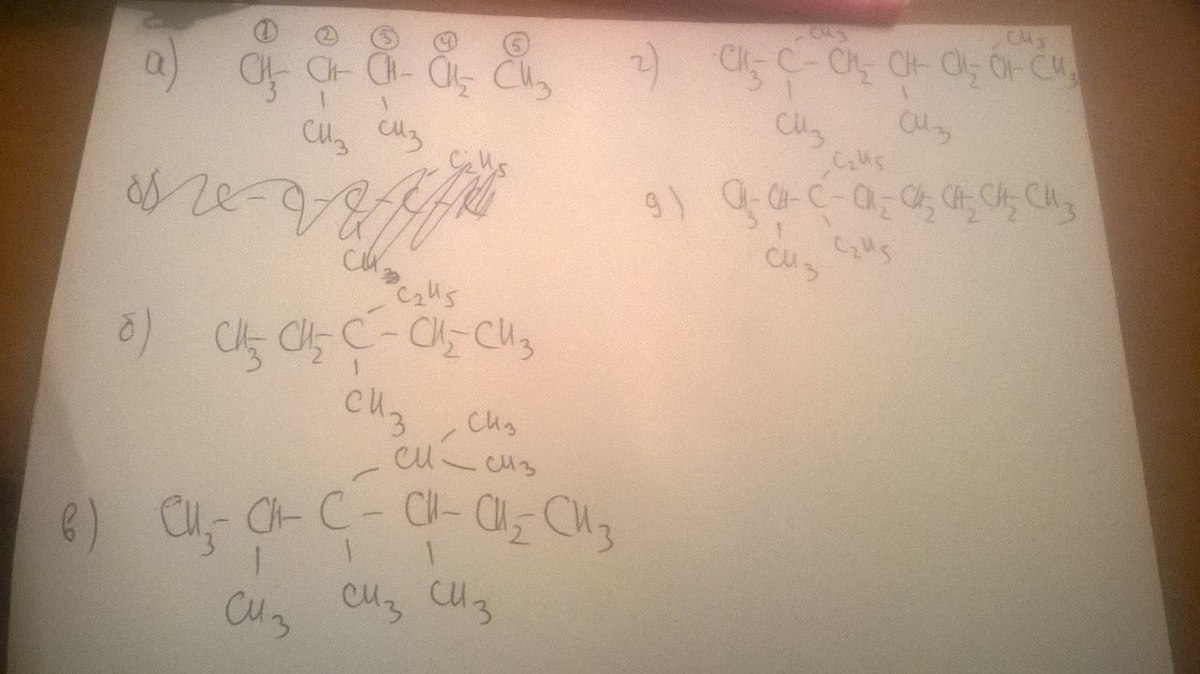 ① ② ③ ④ ⑤
а) CH3- CH- CH- CH2 CH3
CH3 CH3
C2H5
CH3
C2H5
б) CH3- CH2- C - CH2- CH3
CH3
CH3
CH CH3
в) CH3- CH- C - CH- CH2- CH3
CH3 CH3 CH3
CH3 CH3
г) CH3- C - CH2- CH- CH2- CH- CH3
CH3 CH3
C2H5
д) CH3- CH- C - CH2- CH2- CH2- CH2- CH3
CH3 C2H5